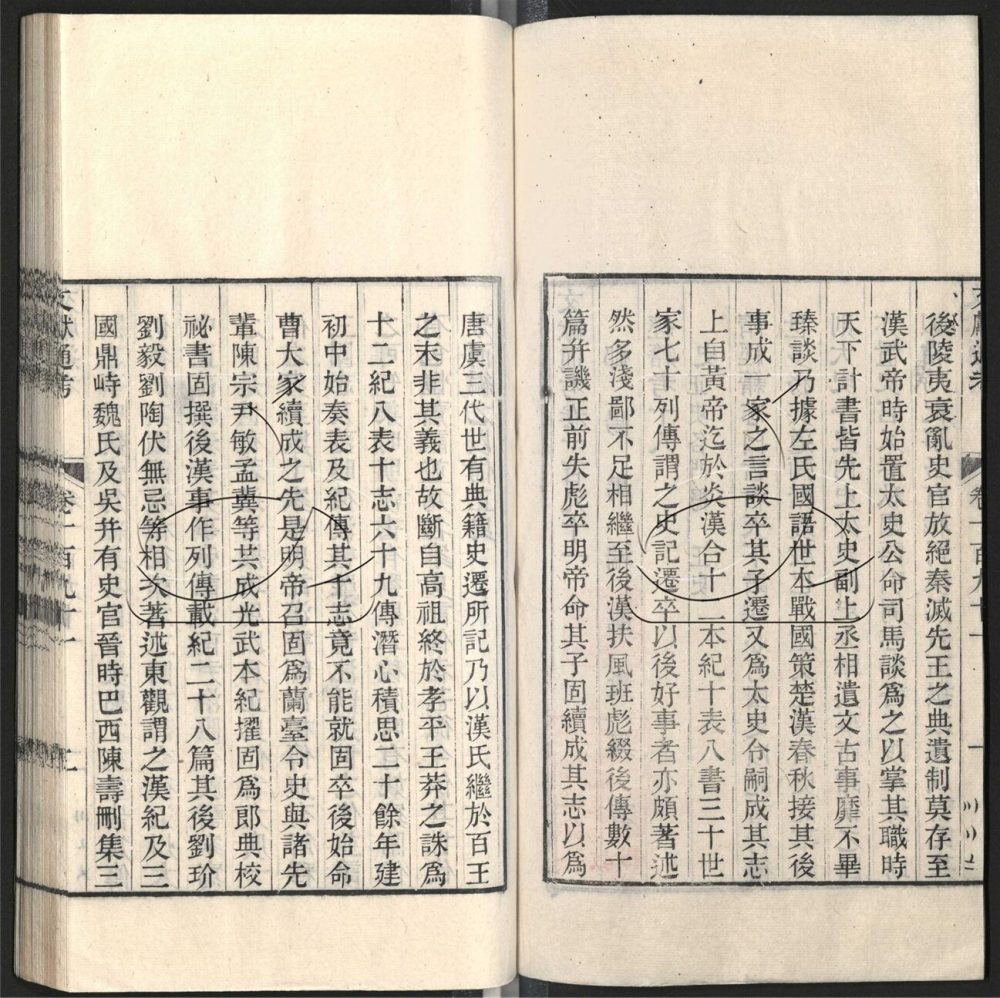 後陵夷衰亂史官放絕秦滅先王之典遺制莫存至
漢武帝時始置太史公命司馬談爲之以掌其職時
天下計書皆先上太史副上丞相遺文古事靡不畢
臻談乃據左氏國語世本戰國策楚漢春秋接其後
事成一家之言談卒其子遷又爲太史令嗣成其志
上自黃帝迄於炎漢合十二本紀十表八書三十世
家七十列傳謂之史記遷卒以後好事者亦頗著述
然多淺鄙不足相繼至後漢扶風班彪綴後傳數十
篇幷譏正前失彪卒明帝命其子固續成其志以爲
唐虞三代世有典籍史遷所記乃以漢氏繼於百王
之末非其義也故斷自高祖終於孝平王莽之誅爲
十二紀八表十志六十九傳潛心積思二十餘年建
初中始奏表及紀傳其十志竟不能就固卒後始命
曹大家續成之先是明帝召固爲蘭臺令史與諸先
輩陳宗尹敏孟冀等共成光武本紀擢固爲郎典校
祕書固撰後漢事作列傳載紀二十八篇其後劉玠
劉毅劉陶伏無忌等相次著述東觀謂之漢紀及三
國鼎峙魏氏及吳幷有史官晉時巴西陳壽刪集三
文獻通考 卷一百九十一 二